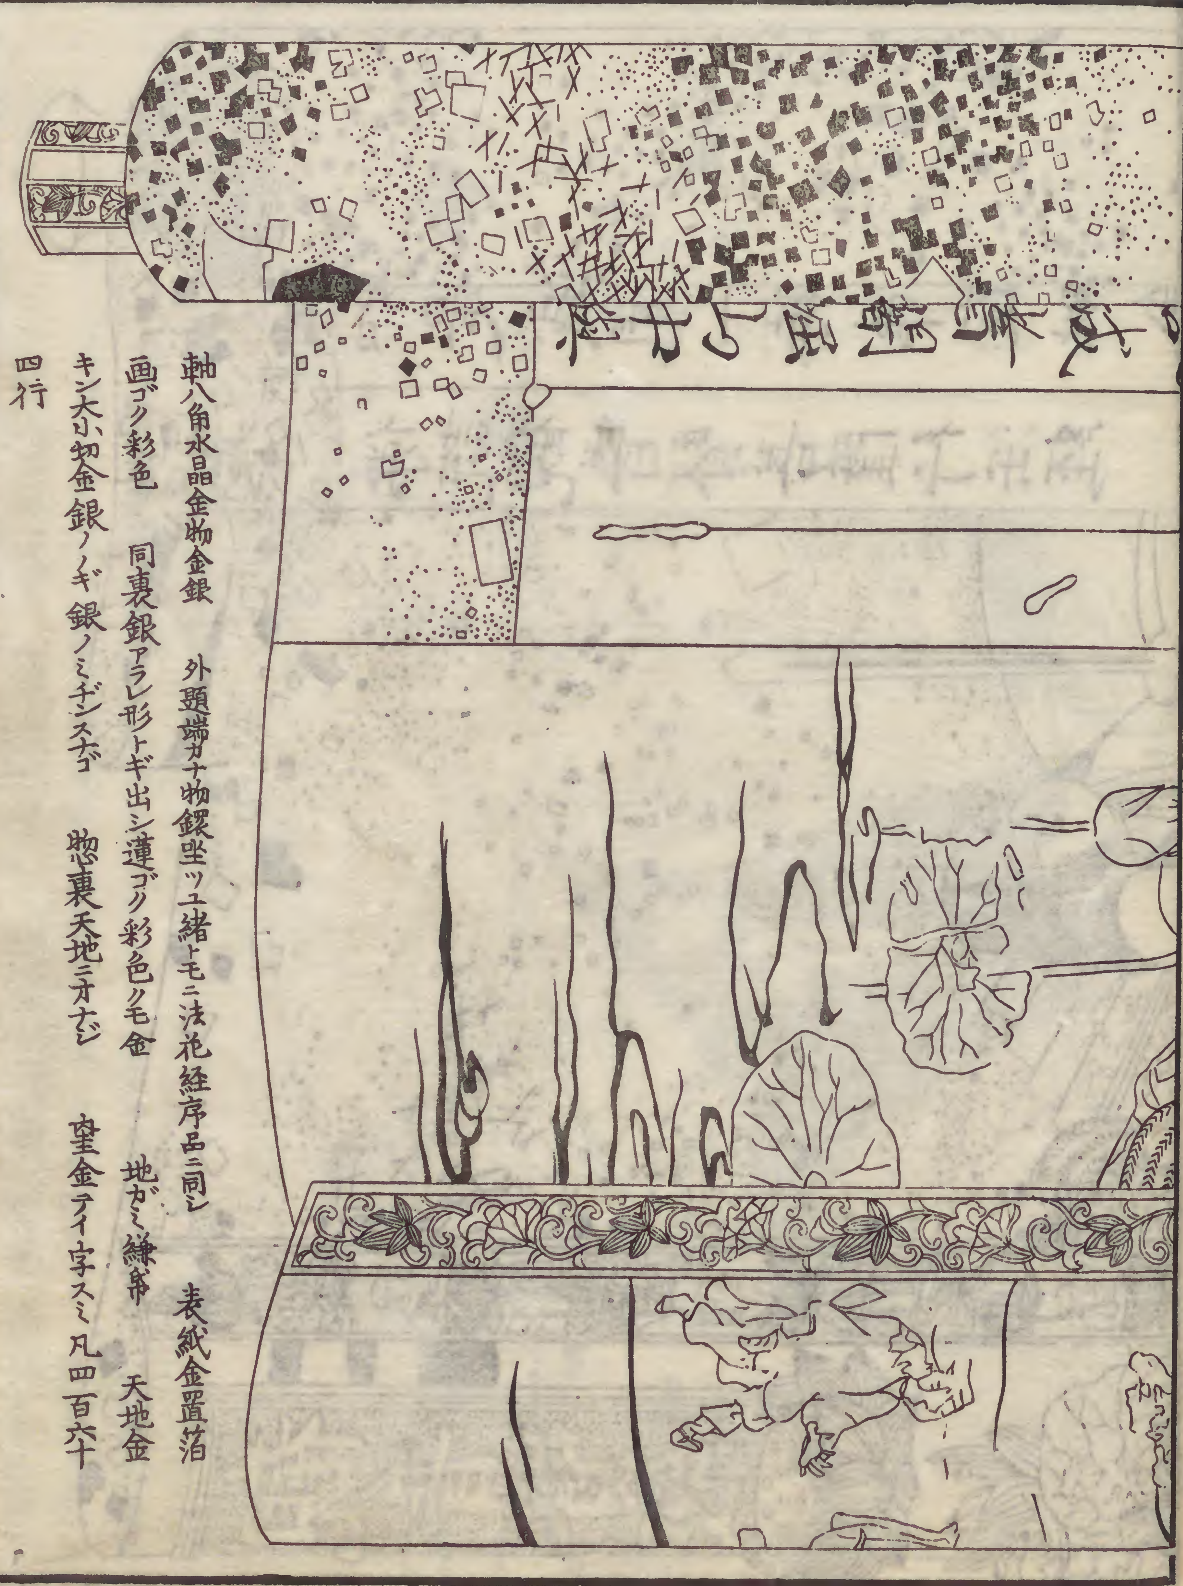 軸八角水晶金物金銀　外題端カナ物鐶坐ツユ緒トモニ法花経序品ニ同シ　表紙金置箔
画ゴク彩色　同裏銀アラレ形トギ出シ蓮ゴク彩色クモ金　地ガミ縑帛　天地金
キン大小切金銀ノノギ銀ノミヂンスナゴ　惣裏天地ニオナジ　金テイ字スミ凡四百六十
四行